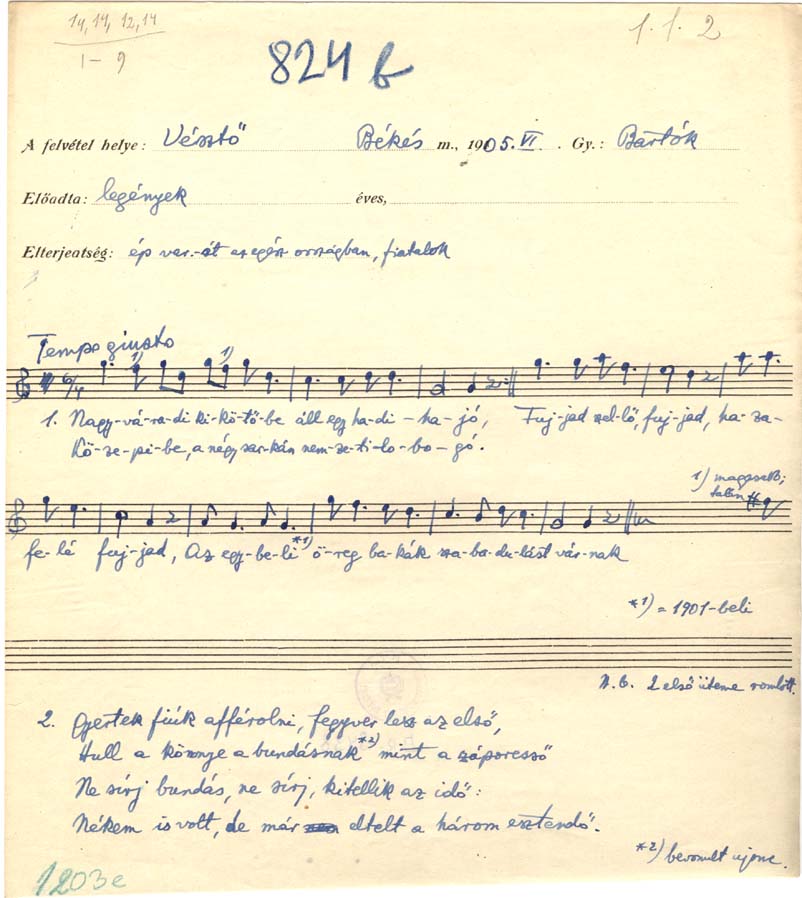 14, 14, 12, 14
1-9
1.1.2
824 b
A felvétel helye: Vésztő Békés m., 1905. VI. Gy.: Bartók
Előadta: legények éves,
Elterjeatség: ép var.-át az egész országban, fiatalok
Tempo giusto
1) 1)
6/4
1. Nagy-vá-ra-di ki-kö-tő-be áll egy ha-di-ha-jó, Fuj-jad szel-lő, fuj-jad, ha-za-
Kö-ze-pi-be, a négy sar-kán nem-ze-ti lo-bo-gó.
1) magasabb;
talán
fe-lé fuj-jad, Az egy-be-li *1) ö-reg ba-kák sza-ba-du-lást vár-nak
*1) = 1901-beli
N.B. 2 első üteme romlott.
2. Gyertek fiúk afférolni, fegyver lesz az első,
Hull a könnye a bundásnak *2) mint a záporesső
Ne sírj bundás, ne sírj, kitellik az idő:
Nékem is volt, de már eltelt a három esztendő.
*2) bevonult ujonc.
1203e